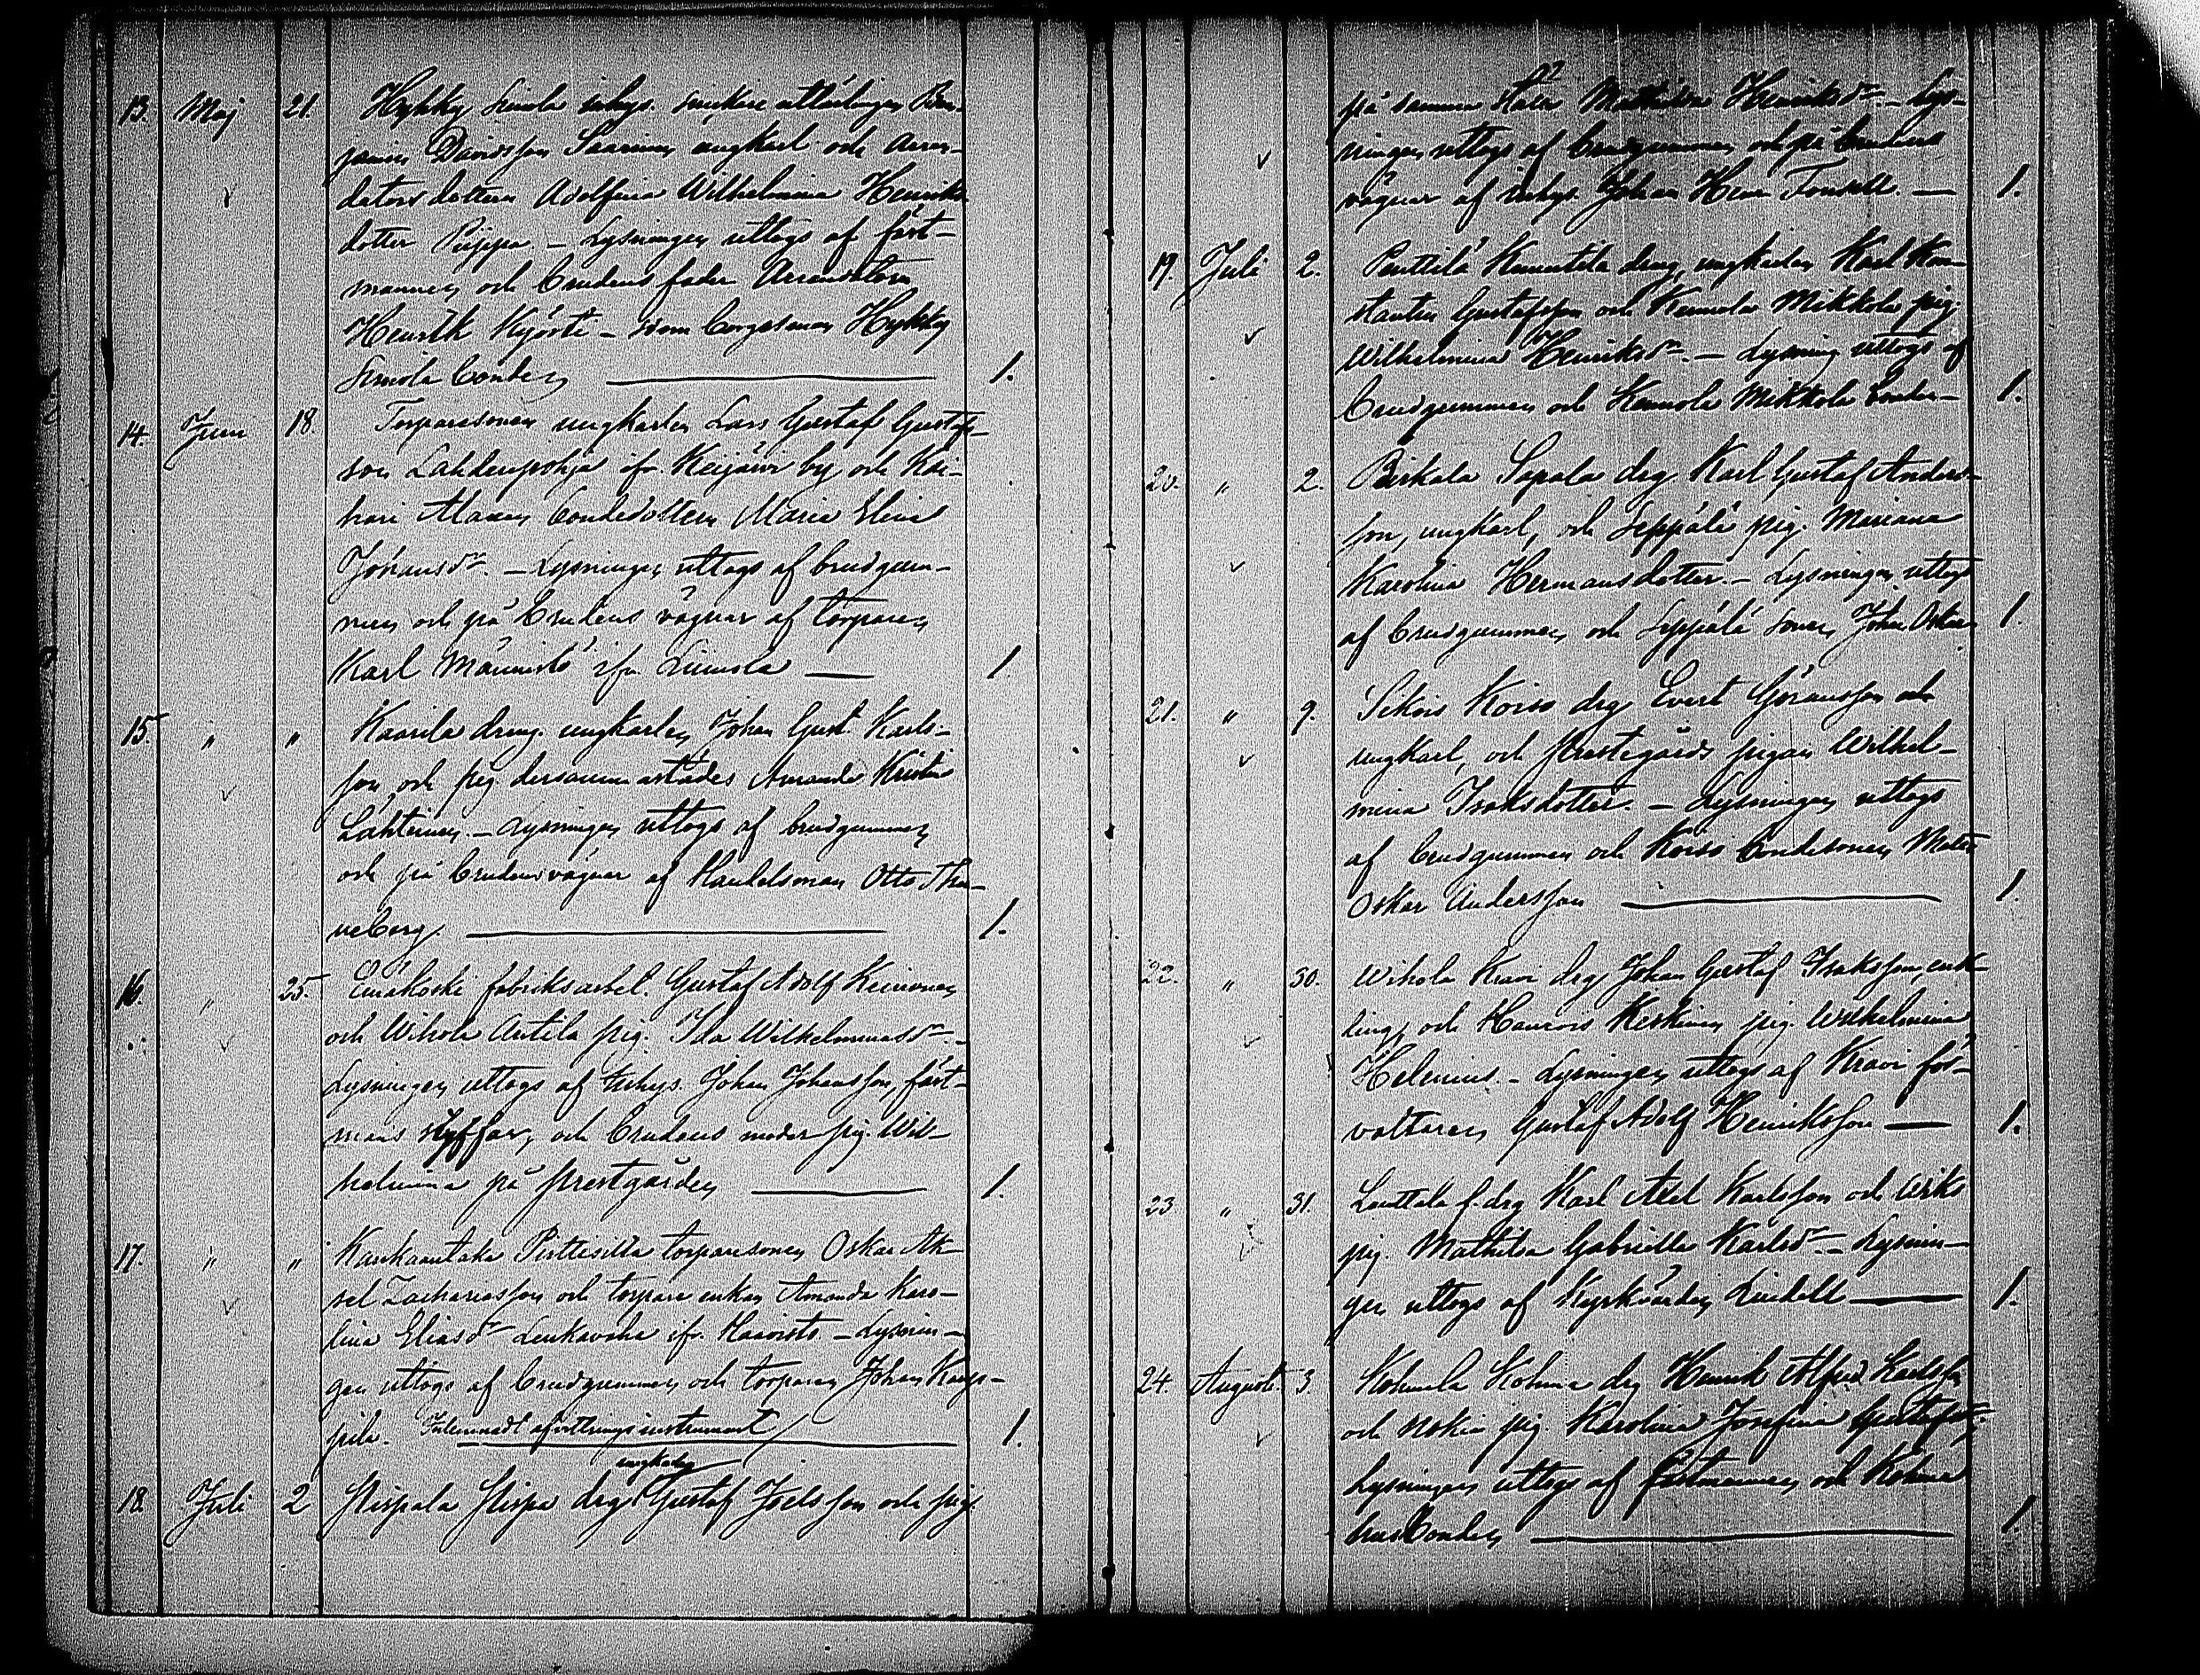 13. Maj 21. Hykky Simola inhys. snickare Ben-
jamin Davidsson Saarinen ungkarl och Arren-
dators dottern Adolfina Wilhelmina Henriks
dotter Piippa. – Lysningen uttogs af fäst-
mannen och brudens fader Arrendatorn
Henrik Kyösti – som borgesman Hykky
Simola bonden 1.
14. Juni 18. Torparesonen ungkarlen Lars Gustaf Gustafs-
son Lahdenpohja ifr. Keijärvi by och
bondedottern Maria Elina
Johansdr. – Lysningen uttogs af brudgum-
men och på brudens vägnar af torparen
Karl Männistö ifr. Liimola 1.
15. " " Kaarila dreng. ungkarlen Johan Gust. Karls-
son och pig. dersammastädes Amanda Kristina
Lahtinen. – Lysningen uttogs af brudgummen
och på brudens vägnar af Handelsman Otto Thu-
neberg. 1.
16. " 25. Emäkoski fabriksarbet. Gustaf Adolf Keinonen
och Wihola Antila pig. Ida Wilhelminasdr. –
Lysningen uttogs af inhys. Johan Johansson, fäst-
mans styffar, och brudens moder pig. Wil-
helmina på prestgården 1.
17. " " Kankaantaka Pirttisilta torparesonen Oskar Ak-
sel Zachariasson och torpare enkan Amanda Karo-
lina Eliasdr Leukavaha ifr. Haavisto – Lysnin-
gen uttogs af brudgummen och torparen Johan Kaup-
pila. Inlemnadt afvittringsinstrument 1.
18. Juli 2 Nispala Nispa drg ungkarlen Gustaf Joelsson och pig.
på samma Mathilda Henriksdr. – Lys-
ningen uttogs af brudgummen och på brudens
vägnar af inhys. Johan Henr Tonsell. – 1.
19. Juli 2. Penttilä Knuutila dreng, ungkarlen Karl Kon-
stantin Gustafsson och Kennola Mikkola pig.
Wilhelmina Henriksdr. – Lysning uttogs af
brudgummen och Kennola Mikkola bonden – 1.
20. " 2. Birkala Sapala drg Karl Gustaf Anders-
son, ungkarl, och Seppälä pig. Mariana
Karolina Hermansdotter. – Lysningen uttogs
af brudgummen och Seppälä sonen Johan Oskar 1.
21. " 9. Sikois Koiso drg Evert Göransson och
ungkarl, och prestegårds pigan Wilhel-
mina Isaksdotter. – Lysningen uttogs
af brudgummen och Koiso bondesonen
Oskar Andersson 1.
22. " 30. Wihola Krovi drg Johan Gustaf Isaksson, enk-
ling, och Haurois Keskinen pig. Wilhelmina
Helenius. – Lysningen uttogs af Krovi för-
valtaren Gustaf Adolf Henriksson 1.
23. " 31. Lauttala f. drg Karl Axel Karlsson och Wiks
pig. Mathilda Gabriella Karlsdr. – Lysnin-
gen uttogs af Kyrkvärden Lindell 1.
24. Augusti 3. Kohmala Kohma drg Henrik Alfred Karlsson
och Nokia pig. Karolina Josefina Gustafsdr.
Lysningen uttogs af fästmannen och Kohma
husbonden 1.